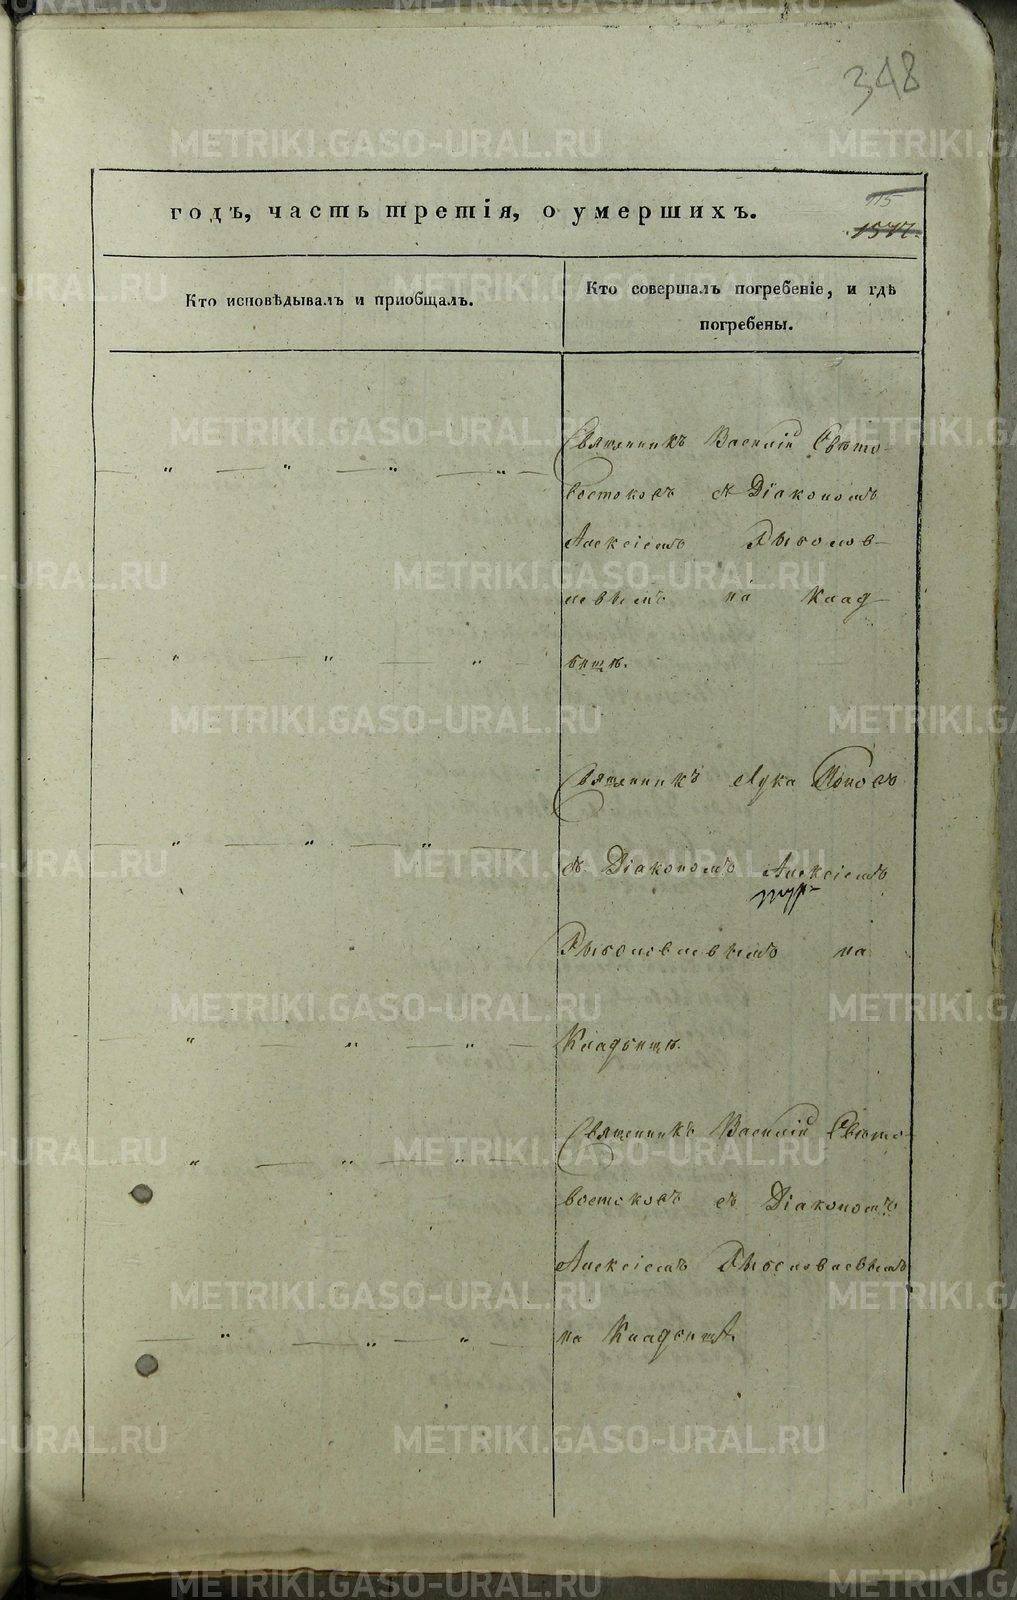 348
годъ, часть третія, о умершихъ.
15
1577.
Кто исповѣдывалъ и приобщалъ.
Кто совершалъ погребеніе, и гдѣ
погребены.
Священникъ Василій Свѣто-
востоковъ съ Діакономъ
Алексіемъ
на Клад-
бищѣ.
Священникъ Лука Поповъ
съ Діакономъ Алексіемъ
на
Кладбищѣ.
Священникъ Василій Свѣто-
востоковъ съ Діакономъ
Алексіемъ
на Кладбищѣ.
METRIKI.GASO-URAL.RU